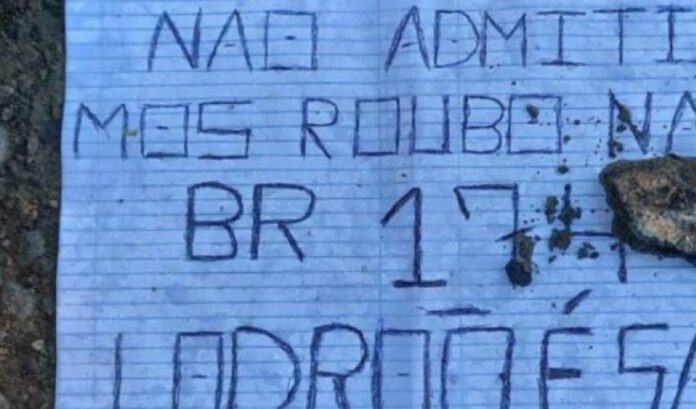 NAO ADMITI
MOS ROUBO NA
BR 174
LADRÃO É SA